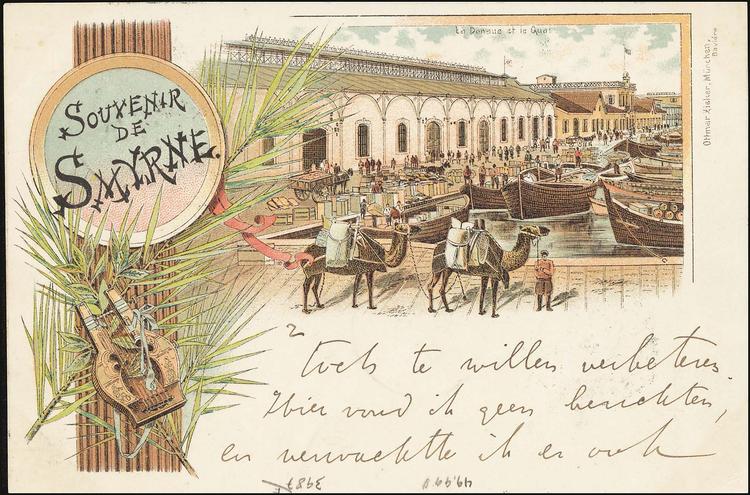 La Douane et le Quai
SOUVENIR
DE
SMYRNE.
Ottmar Zieher, München,
Bavière
2
toch te willen verbeteren
Hier vond ik geen berichten,
en verwachtte ik er ook
3987